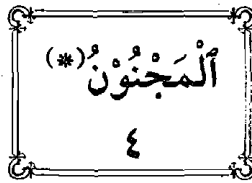 ٱلْمَجْنُوْنُ(*)
٤